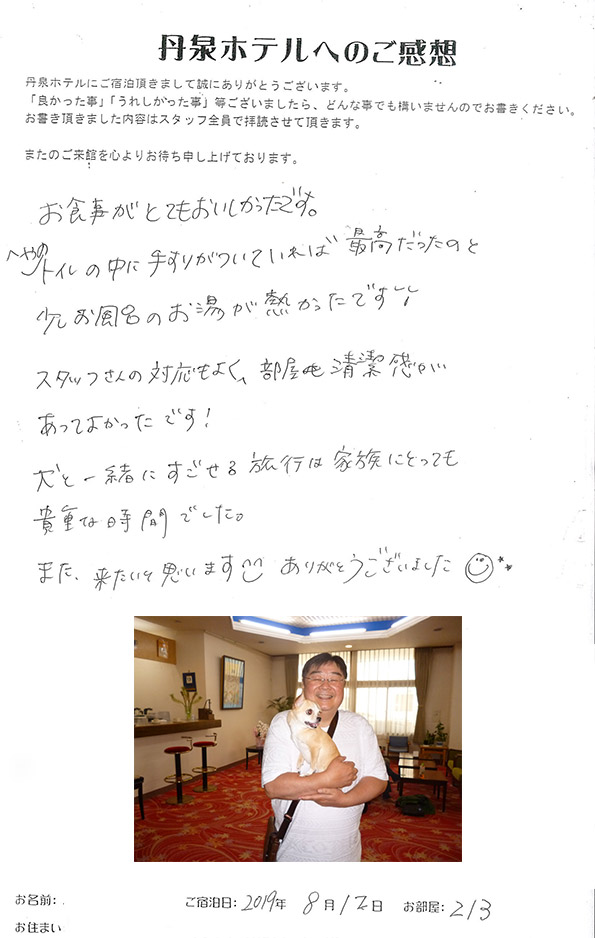 丹泉ホテルへのご感想
丹泉ホテルにご宿泊頂きまして誠にありがとうございます。
「良かった事」「うれしかった事」等ございましたら、どんな事でも構いませんのでお書きください。
お書き頂きました内容はスタッフ全員で拝読させて頂きます。
またのご来館を心よりお待ち申し上げております。
お食事がとてもおいしかったです。
へやのトイレの中に手すりがついていれば最高だったのと
少しお風呂のお湯が熱かったです
スタッフさんの対応もよく、部屋も清潔感が
あってよかったです!
犬と一緒にすごせる旅行は家族にとっても
貴重な時間でした。
また、来たいと思います ありがとうございました
お名前:
ご宿泊日: 2019年 8月12日 お部屋: 213
お住まい